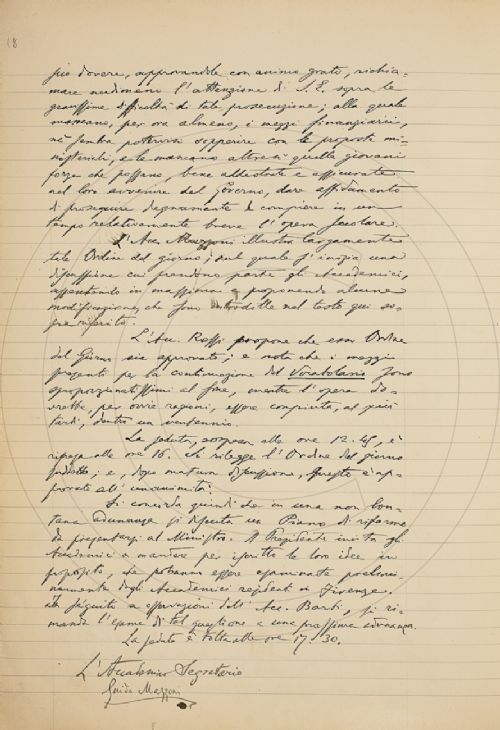 18
suo dovere, approvandole con animo grato, richia-
mare nondimeno l'attenzione di S.E. sopra le
gravissime difficoltà di tale prosecuzione; alla quale
mancano, per ora almeno, i mezzi finanziarii,
nè sembra potervisi sopperire con le proposte mi-
nisteriali, e le mancano altresì quelle giovani
forze che possano, bene addestrate e assicurate
nel loro avvenire dal Governo, dare affidamento
di proseguire degnamente e compiere in un
tempo relativamente breve l'opera secolare.
L'Acc. Mazzoni illustra largamente
tale Ordine del giorno; sul quale s'inizia una
discussione cui prendono parte gli Accademici,
assentendo in massima e proponendo alcune
modificazioni, che sono introdotte nel testo qui so-
pra riferito.
L'Acc. Rossi propone che esso Ordine
del Giorno sia approvato; e nota che i mezzi
presenti per la continuazione del Vocabolario sono
sproporzionatissimi al fine, mentre l'opera do-
vrebbe, per ovvie ragioni, essere compiuta, al più
tardi, dentro un ventennio.
La seduta, sospesa alle ore 12.45, è
ripresa alle ore 16. Si rilegge l'Ordine del giorno
suddetto; e, dopo matura discussione, questo è ap-
provato all'unanimità.
Si concorda quindi che in una non lon-
tana adunanza si discuta un Piano di riforme
da presentarsi al Ministro. Il Presidente invita gli
Accademici a mandare per iscritto le loro idee in
proposito, che potranno essere esaminate prelimi-
narmente dagli Accademici residenti in Firenze.
In seguito a osservazioni dell'Acc. Barbi, si ri-
manda l'esame di tal questione a una prossima adunanza.
La seduta è tolta alle ore 17.30.
L'Accademico Segretario
Guido Mazzoni